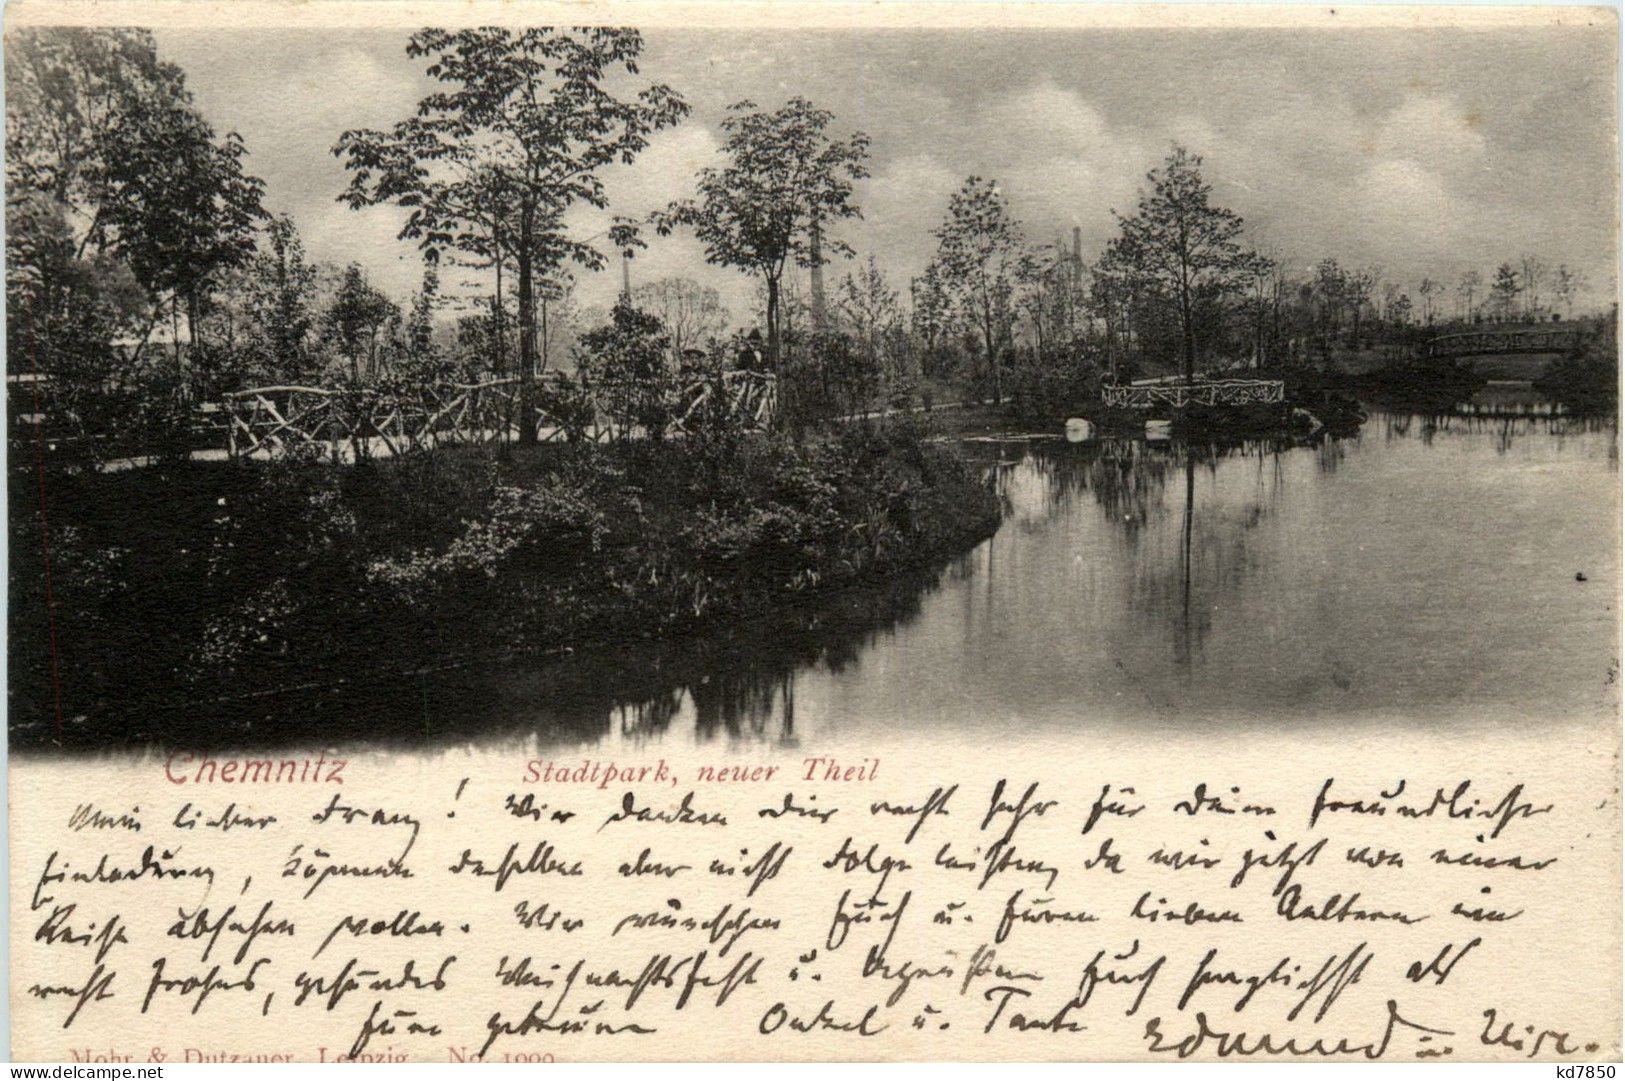 Chemnitz Stadtpark, neuer Theil
Mein lieber Franz! Wir danken Dir recht sehr für Deine freundliche
Einladung, können derselben aber nicht Folge leisten, da wir jetzt von einer
Reise absehen wollen. Wir wünschen Euch u. Euren lieben Aeltern ein
recht frohes, gesundes Weihnachtsfest u. begrüßen Euch herzlichst als
Eure getreuen Onkel u. Tante Edmund u.
Mohr & Dutzauer, Leipzig. No. 1000
delcampe.net
kd7850